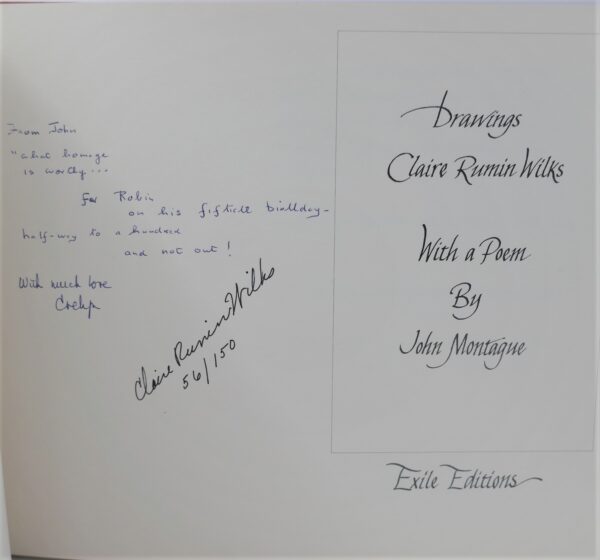 From John
"what homage
is worthy...
for Robin
on his fiftieth birthday-
half-way to a hundred
and not out!
With much love
Claire Rumin Wilks
56/150
Drawings
Claire Rumin Wilks
With a Poem
By
John Montague
Exile Editions